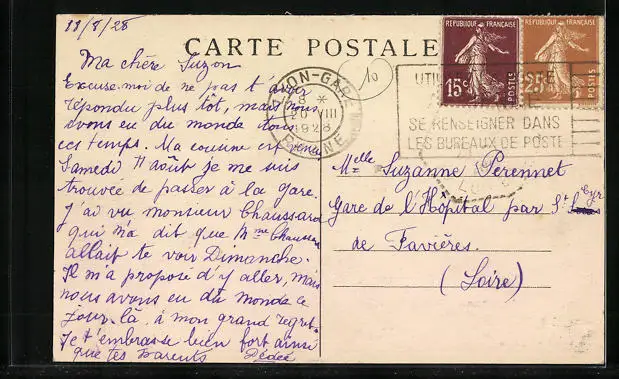 11/8/28
CARTE POSTALE
Ma chère Suzon
Excuse-moi de ne pas t'avoir
répondu plus tôt, mais nous
avons eu du monde tous
ces temps. Ma cousine est venue
Samedi 11 août je me suis
trouvée de passer à la gare.
J'ai vu monsieur Chaussard
qui m'a dit que Mme Chaussard
allait te voir Dimanche.
Il m'a proposé d'y aller, mais
nous avons eu du monde ce
jour-là, à mon grand regret.
Je t'embrasse bien fort ainsi
que tes Parents Dédée
10
REPUBLIQUE FRANÇAISE
15c
POSTES
REPUBLIQUE FRANÇAISE
25c
POSTES
-GARE
8 *
20 VIII
1928
SE RENSEIGNER DANS
LES BUREAUX DE POSTE
Melle Suzanne Perennet
Gare de l'Hôpital par St Cyr
de Favières.
(Loire)